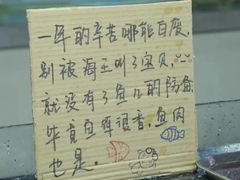 一年的辛苦哪能白废
别被海王叫了宝贝，
就没有了鱼儿的防备
毕竟鱼群很香，鱼肉
也是。